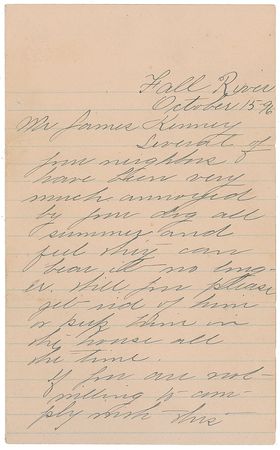 Fall River
October 15-96
Mr James Kenney
Several of
your neighbors
have been very
much annoyed
by your dog all
summer and
feel they can
bear it no long
er. Will you please
get rid of him
or keep him in
the house all
the time.
If you are not
willing to com-
ply with this